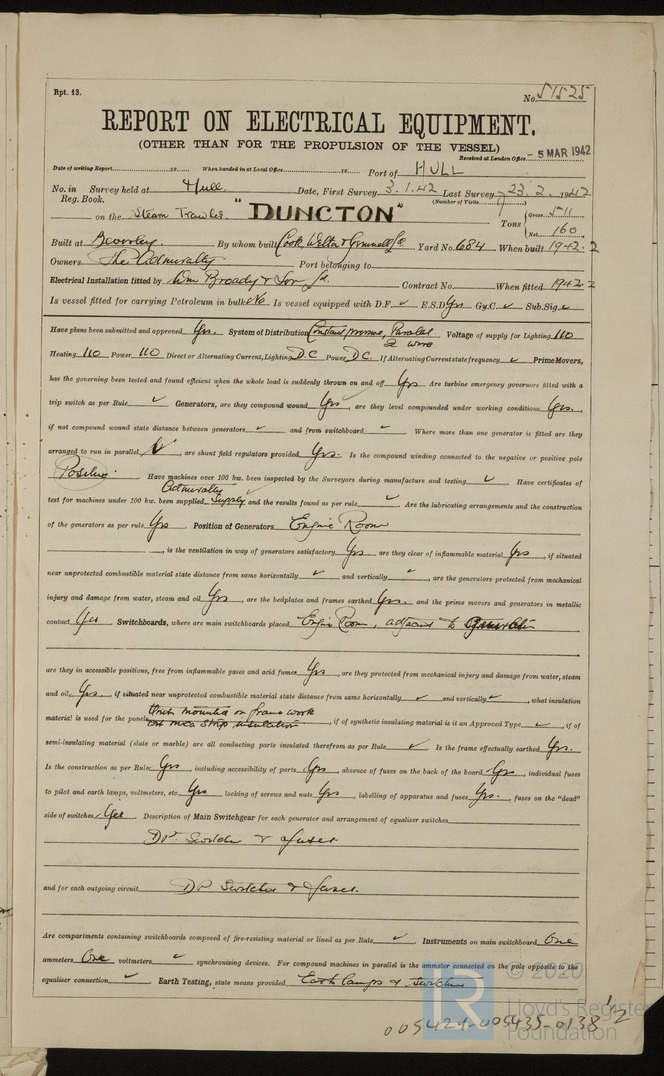 Rpt. 13.
No. 51525
REPORT ON ELECTRICAL EQUIPMENT.
(OTHER THAN FOR THE PROPULSION OF THE VESSEL)
Received at London Office - 5 MAR 1942
Date of writing Report 19 When handed in at Local Office 19 Port of HULL
No. in Survey held at Hull. Date, First Survey 3.1.42 Last Survey 23.2.1942
Reg. Book. (Number of Visits 7)
on the Steam Trawler "DUNCTON" Tons { Gross 511
Net 160
Built at Beverley. By whom built Cook, Welton & Gemmell Ld Yard No. 684 When built 1942.2
Owners The Admiralty Port belonging to
Electrical Installation fitted by Wm Broady & Son Ld. Contract No. When fitted 1942.2
Is vessel fitted for carrying Petroleum in bulk No Is vessel equipped with D.F. ✓ E.S.D. Yes Gy.C. ✓ Sub.Sig. ✓
Have plans been submitted and approved Yes. System of Distribution Constant pressure, Parallel 2 wire Voltage of supply for Lighting 110
Heating 110 Power 110 Direct or Alternating Current, Lighting DC Power DC. If Alternating Current state frequency ✓ Prime Movers,
has the governing been tested and found efficient when the whole load is suddenly thrown on and off Yes Are turbine emergency governors fitted with a
trip switch as per Rule ✓ Generators, are they compound wound Yes, are they level compounded under working conditions Yes.,
if not compound wound state distance between generators ✓ and from switchboard ✓ Where more than one generator is fitted are they
arranged to run in parallel ✓, are shunt field regulators provided Yes. Is the compound winding connected to the negative or positive pole
Positive. Have machines over 100 kw. been inspected by the Surveyors during manufacture and testing ✓ Have certificates of
test for machines under 100 kw. been supplied Admiralty Supply and the results found as per rule ✓ Are the lubricating arrangements and the construction
of the generators as per rule Yes Position of Generators Engine Room
, is the ventilation in way of generators satisfactory Yes are they clear of inflammable material Yes, if situated
near unprotected combustible material state distance from same horizontally ✓ and vertically ✓, are the generators protected from mechanical
injury and damage from water, steam and oil Yes, are the bedplates and frames earthed Yes. and the prime movers and generators in metallic
contact Yes Switchboards, where are main switchboards placed Engine Room, adjacent to Generator
are they in accessible positions, free from inflammable gases and acid fumes Yes, are they protected from mechanical injury and damage from water, steam
and oil Yes., if situated near unprotected combustible material state distance from same horizontally ✓ and vertically ✓, what insulation
material is used for the panels Units mounted on frame work, if of synthetic insulating material is it an Approved Type ✓, if of
semi-insulating material (slate or marble) are all conducting parts insulated therefrom as per Rule ✓ Is the frame effectually earthed Yes.
Is the construction as per Rule Yes, including accessibility of parts Yes, absence of fuses on the back of the board Yes, individual fuses
to pilot and earth lamps, voltmeters, etc. Yes locking of screws and nuts Yes, labelling of apparatus and fuses Yes., fuses on the "dead"
side of switches Yes. Description of Main Switchgear for each generator and arrangement of equaliser switches
DP. Switches & fuses
and for each outgoing circuit DP Switches & fuses.
Are compartments containing switchboards composed of fire-resisting material or lined as per Rule ✓ Instruments on main switchboard One
ammeters One voltmeters ✓ synchronising devices. For compound machines in parallel is the ammeter connected on the pole opposite to the
equaliser connection ✓ Earth Testing, state means provided Earth lamps & switches
© 2020
Lloyd's Register
Foundation
005424-005435-0138 1/2